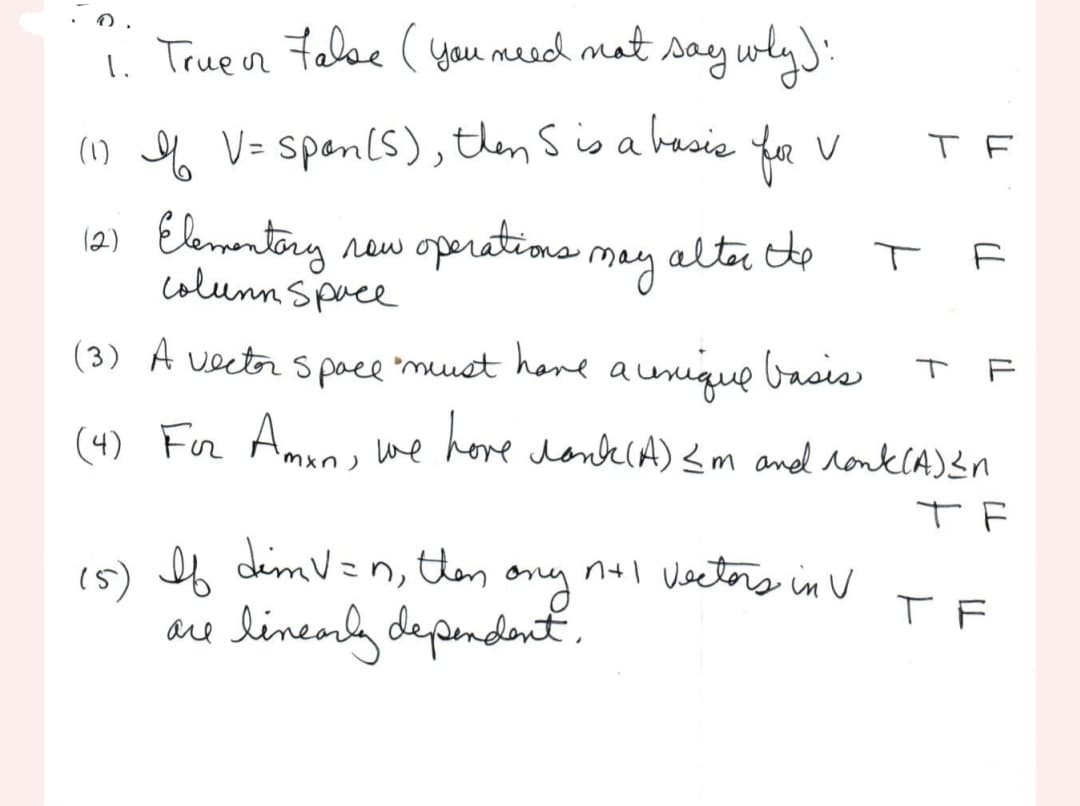 1. True or False (you need not say why):
(1) If V= span(S), then S is a basis for V T F
(2) Elementary row operations may alter the T F
column space
(3) A vector space must have a unique basis T F
(4) For Amxn, we have rank(A) ≤ m and rank(A) ≤ n
T F
(5) If dim V = n, then any n+1 vectors in V
are linearly dependent. T F